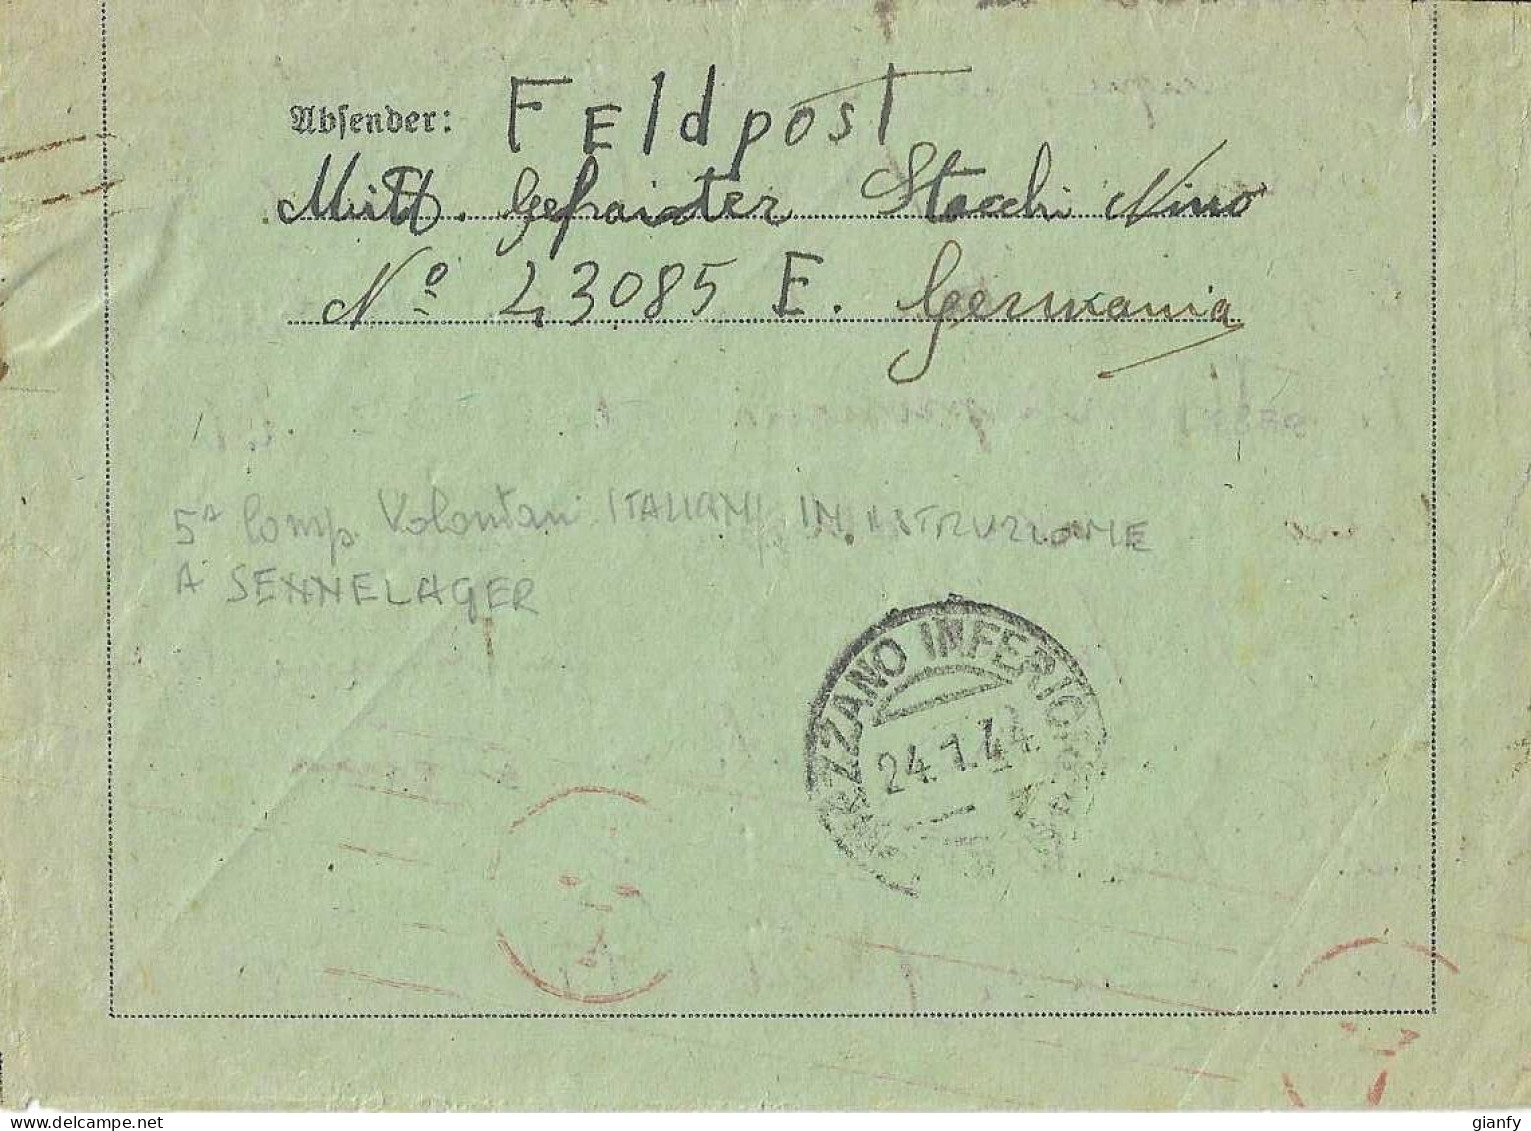 Absender: FEldposT
Mitt. Gefraiter Stacchi Nino
Nº 43085 E. Germania
5ª Comp. Volontari ITALIANI IN ISTRUZIONE
A SENNELAGER
MEZZANO INFERIORE
24.1.44
gianfy